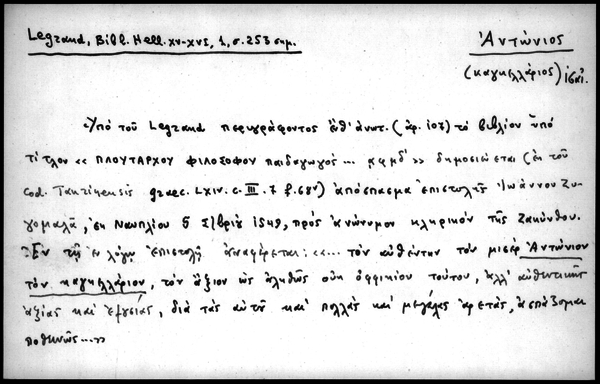 Legrand, Bibl. Hell. XV-XVI, 1, σ. 253 σημ.
Ἀντώνιος
(καγκελλάριος) ἱσαί.
Ὑπό τοῦ Legrand περιγράφοντος ἐνθ' ἀνωτ. (ἀρ. 107) τό βιβλίον ὑπό
τίτλον «ΠΛΟΥΤΑΡΧΟΥ ΦΙΛΟΣΟΦΟΥ παιδαγωγός... ͵αφμδ'» δημοσιεύεται (ἐκ τοῦ
cod. Taurinensis graec. LXIV. c. III. 7 f. 68ν) ἀπόσπασμα ἐπιστολῆς Ἰωάννου Ζυ-
γομαλᾶ, ἐκ Ναυπλίου 5 1549, πρός ἀνώνυμον κληρικόν τῆς Ζακύνθου.
Ἐν τῇ ἐν λόγῳ ἐπιστολῇ ἀναφέρεται: «... τόν αὐθέντην τόν μισέρ Ἀντώνιον
τόν καγκελλάριον, τόν ἄξιον ὡς ἀληθῶς οὐκ ὀφφικίου τούτου, ἀλλ' αὐθεντικῆς
ἀξίας καί ἐξουσίας, διά τάς αὐτῇ καί πολλάς καί μεγάλας ἀρετάς, ἀσπάζομαι
ποθηνῶς...»